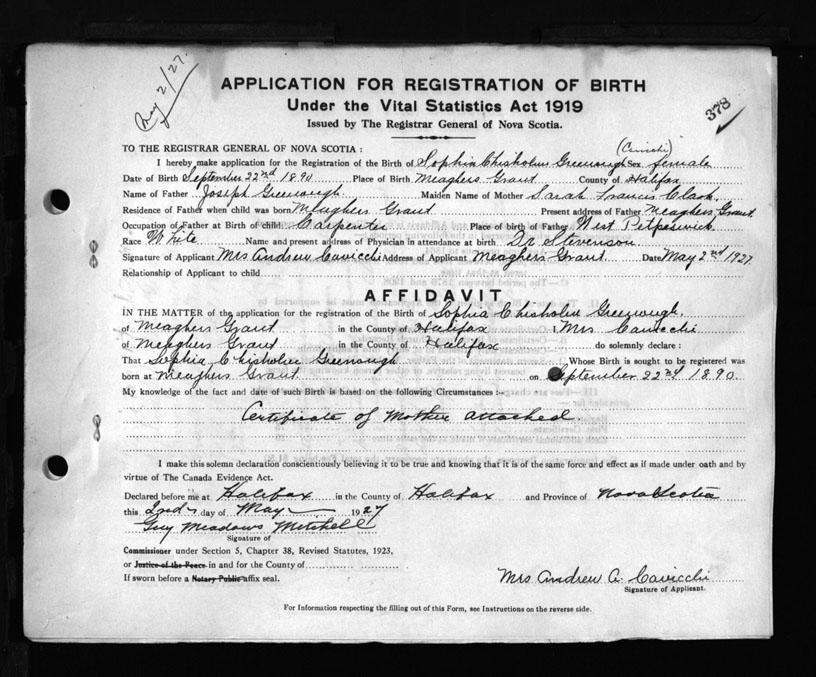 May 2/27.
APPLICATION FOR REGISTRATION OF BIRTH
Under the Vital Statistics Act 1919
378
Issued by The Registrar General of Nova Scotia.
TO THE REGISTRAR GENERAL OF NOVA SCOTIA :
I hereby make application for the Registration of the Birth of Sophia Chisholm Greenough Sex female
Date of Birth September 22nd 1890 Place of Birth Meaghers Grant County of Halifax
Name of Father Joseph Greenough Maiden Name of Mother Sarah Francis Clark.
Residence of Father when child was born Meaghers Grant Present address of Father Meaghers Grant
Occupation of Father at Birth of child Carpenter Place of birth of Father West Petpeswick
Race White Name and present address of Physician in attendance at birth Dr Stevenson
Signature of Applicant Mrs Andrew Cavicchi Address of Applicant Meaghers Grant Date May 2nd 1927.
Relationship of Applicant to child
AFFIDAVIT
IN THE MATTER of the application for the registration of the Birth of Sophia Chisholm Greenough
of Meaghers Grant in the County of Halifax I, Mrs Cavicchi
of Meaghers Grant in the County of Halifax do solemnly declare :
That Sophia Chisholm Greenough Whose Birth is sought to be registered was
born at Meaghers Grant on September 22nd 1890.
My knowledge of the fact and date of such Birth is based on the following Circumstances :-
Certificate of Mother attached.
I make this solemn declaration conscientiously believing it to be true and knowing that it is of the same force and effect as if made under oath and by
virtue of The Canada Evidence Act.
Declared before me at Halifax in the County of Halifax and Province of Nova Scotia
this 2nd day of May 1927
Guy Meadows Mitchell
Signature of
Commissioner under Section 5, Chapter 38, Revised Statutes, 1923,
or Justice of the Peace in and for the County of
If sworn before a Notary Public affix seal.
Mrs Andrew A. Cavicchi
Signature of Applicant.
For Information respecting the filling out of this Form, see Instructions on the reverse side.